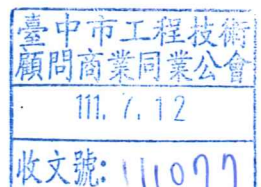 臺中市工程技術
顧問商業同業公會
111. 7. 12
收文號: 111077